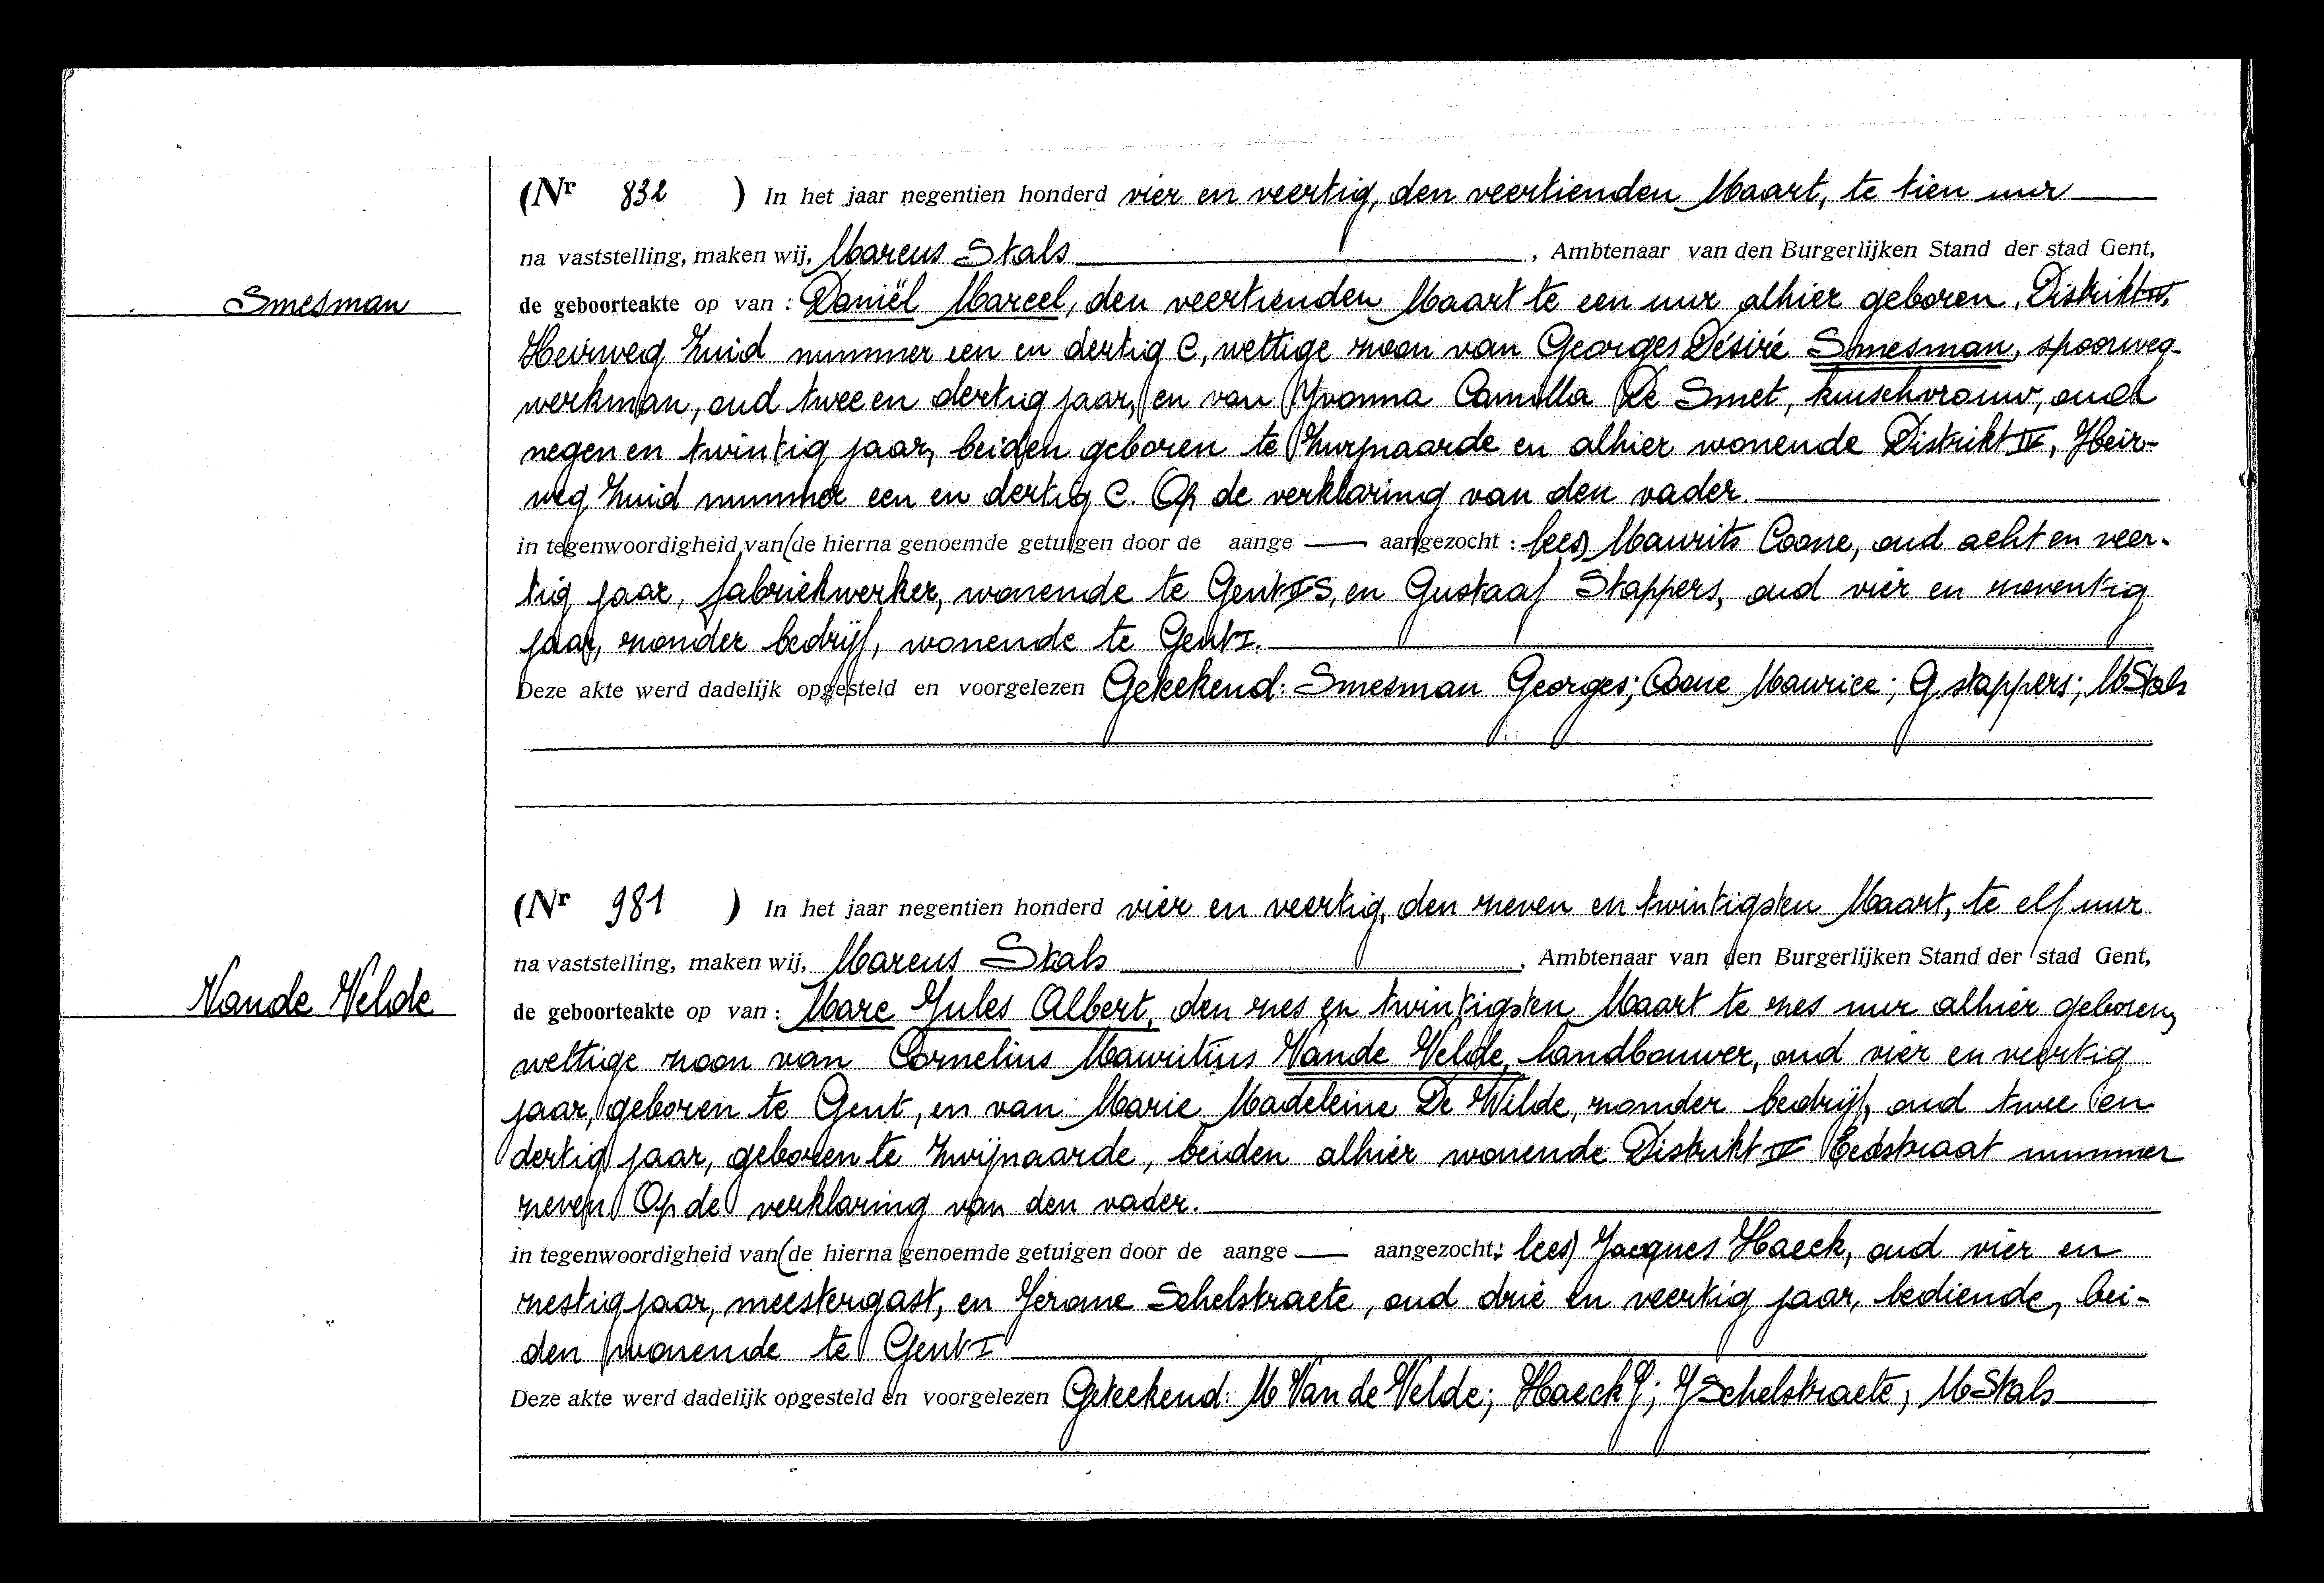 (Nr 832 ) In het jaar negentien honderd vier en veertig, den veertienden Maart, te tien uur
na vaststelling, maken wij, Marcus Stals , Ambtenaar van den Burgerlijken Stand der stad Gent,
Smesman
de geboorteakte op van : Daniël Marcel, den veertienden Maart te een uur alhier geboren, Distrikt IV,
Heirweg Zuid nummer een en dertig C, wettige zoon van Georges Désiré Smesman, spoorweg-
werkman, oud twee en dertig jaar, en van Yvonna Camilla De Smet, huisvrouw, oud
negen en twintig jaar, beiden geboren te Zwijnaarde en alhier wonende Distrikt IV, Heir-
weg Zuid nummer een en dertig C. Op de verklaring van den vader.
in tegenwoordigheid van (de hierna genoemde getuigen door de aange — aangezocht : lees) Maurits Coone, oud acht en veer-
tig jaar, fabriekwerker, wonende te Gent IS, en Gustaaf Stappers, oud vier en zeventig
jaar, zonder bedrijf, wonende te Gent I.
Deze akte werd dadelijk opgesteld en voorgelezen Geteekend: Smesman Georges; Coone Maurice; G. stappers; M Stals
(Nr 981 ) In het jaar negentien honderd vier en veertig, den zeven en twintigsten Maart, te elf uur
na vaststelling, maken wij, Marcus Stals , Ambtenaar van den Burgerlijken Stand der stad Gent,
Vande Velde
de geboorteakte op van : Marc Jules Albert, den zes en twintigsten Maart te zes uur alhier geboren,
wettige zoon van Cornelius Mauritius Vande Velde, landbouwer, oud vier en veertig
jaar, geboren te Gent, en van Marie Madeleine De Wilde, zonder bedrijf, oud twee en
dertig jaar, geboren te Zwijnaarde, beiden alhier wonende Distrikt IV Eedstraat nummer
zeven. Op de verklaring van den vader.
in tegenwoordigheid van (de hierna genoemde getuigen door de aange — aangezocht : lees) Jacques Haeck, oud vier en
zestig jaar, meestergast, en Jerome Schelstraete, oud drie en veertig jaar, bediende, bei-
den wonende te Gent I
Deze akte werd dadelijk opgesteld en voorgelezen Geteekend: M Van de Velde; Haeck J; J Schelstraete; M Stals